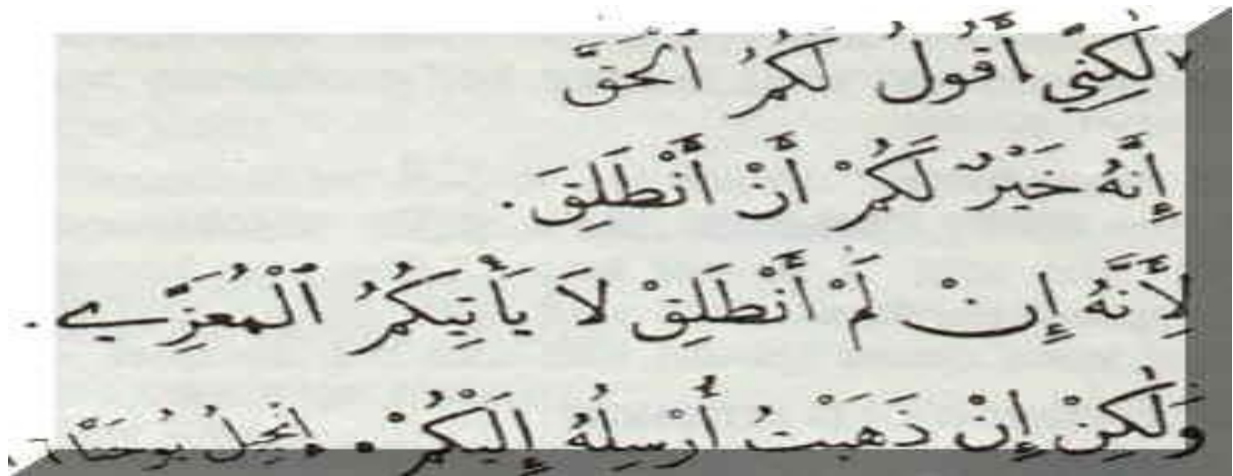 ٧ لٰكِنِّي أَقُولُ لَكُمُ ٱلْحَقَّ
إِنَّهُ خَيْرٌ لَكُمْ أَنْ أَنْطَلِقَ.
لِأَنَّهُ إِنْ لَمْ أَنْطَلِقْ لَا يَأْتِيكُمُ ٱلْمُعَزِّي.
وَلٰكِنْ إِنْ ذَهَبْتُ أُرْسِلُهُ إِلَيْكُمْ. إنجيلُ يُوحَنَّا ١٦